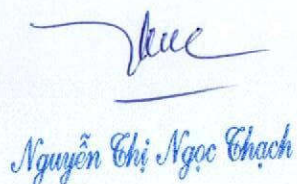 Nguyễn Thị Ngọc Thạch